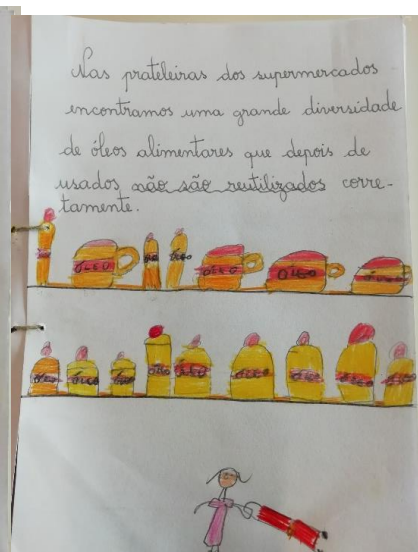 Nas prateleiras dos supermercados
encontramos uma grande diversidade
de óleos alimentares que depois de
usados não são reutilizados corre-
tamente.
ÓLEO ÓLEO ÓLEO
ÓLEO ÓLEO ÓLEO ÓLEO ÓLEO